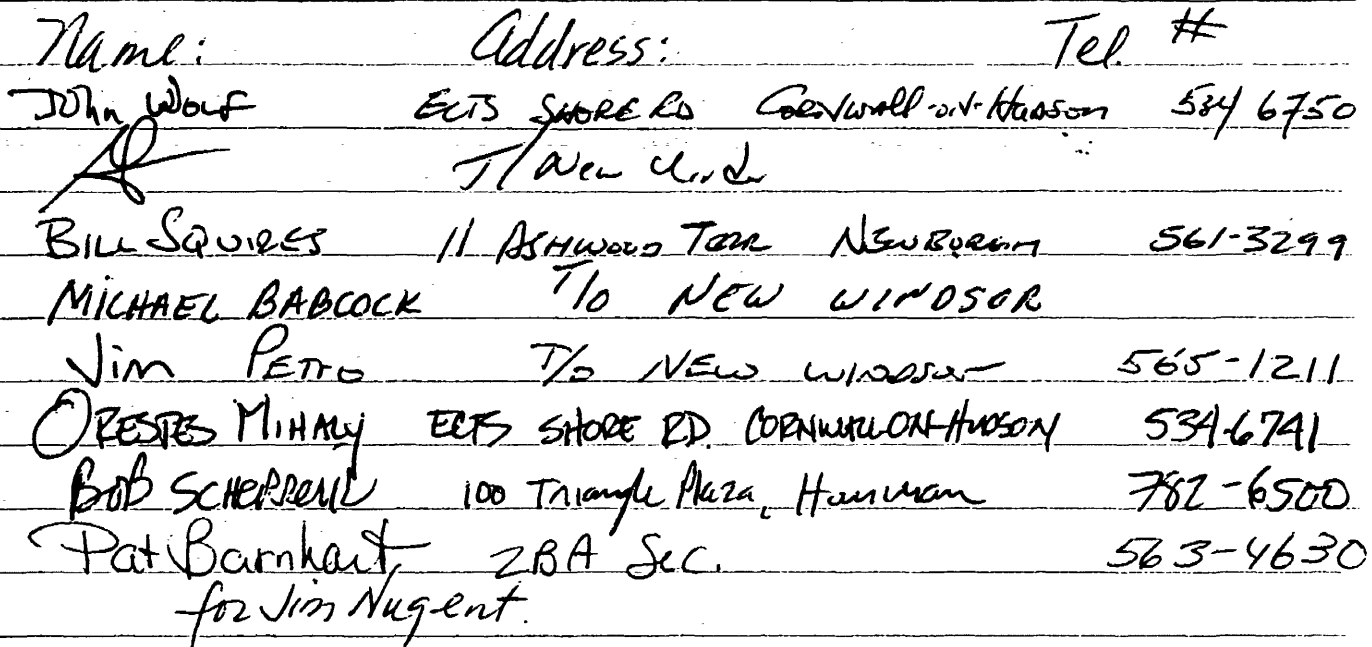 Name: Address: Tel. #
John Wolf ECTS SHORE RD CORNWALL-ON-HUDSON 534 6750
T/ New
BILL SQUIRES 11 ASHWOOD TERR NEWBURGH 561-3299
MICHAEL BABCOCK T/O NEW WINDSOR
Jim PETRO T/O NEW WINDSOR 565-1211
ORESTES MIHALY ECTS SHORE RD. CORNWALL ON HUDSON 534-6741
BOB 100 Triangle Plaza, Harriman 782-6500
Pat Barnhart, ZBA Sec. 563-4630
for Jim Nugent.